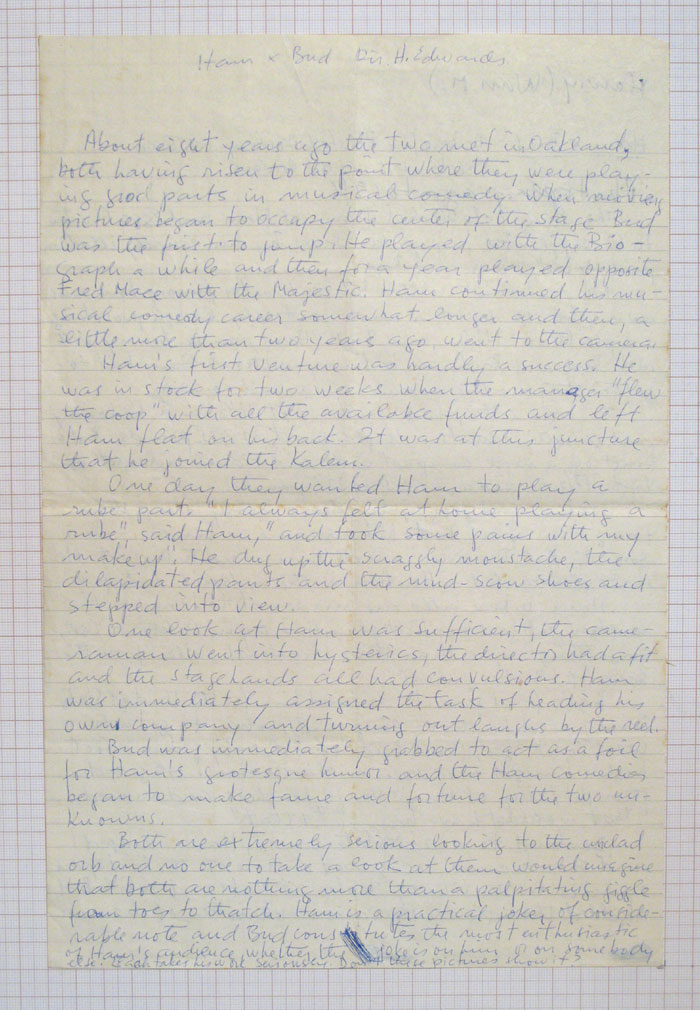 Ham & Bud Dir H. Edwards
About eight years ago the two met in Oakland,
both having risen to the point where they were play-
ing good parts in musical comedy when moving
pictures began to occupy the center of the stage. Bud
was the first to jump. He played with the Bio-
graph a while and then for a year played opposite
Fred Mace with the Majestic. Ham continued his mu-
sical comedy career somewhat longer and then, a
little more than two years ago went to the camera.
Ham's first venture was hardly a success. He
was in stock for two weeks when the manager "flew
the coop" with all the available funds and left
Ham flat on his back. It was at this juncture
that he joined the Kalem.
One day they wanted Ham to play a
rube part. "I always felt at home playing a
rube", said Ham, "and took some pains with my
make up". He dug up the scraggly moustache, the
dilapidated pants and the mud-scow shoes and
stepped into view.
One look at Ham was sufficient, the came-
raman went into hysterics, the director had a fit
and the stagehands all had convulsions. Ham
was immediately assigned the task of heading his
own company and turning out laughs by the reel.
Bud was immediately grabbed to act as a foil
for Ham's grotesque humor and the Ham comedies
began to make fame and fortune for the two un-
knowns.
Both are extremely serious looking to the unclad
orb and no one to take a look at them would imagine
that both are nothing more than a palpitating giggle
from toes to thatch. Ham is a practical joker of conside-
rable note and Bud constitutes the most enthusiastic
of Ham's audience whether the joke is on him or on somebody
else. Each takes his work seriously. Don't these pictures show it?